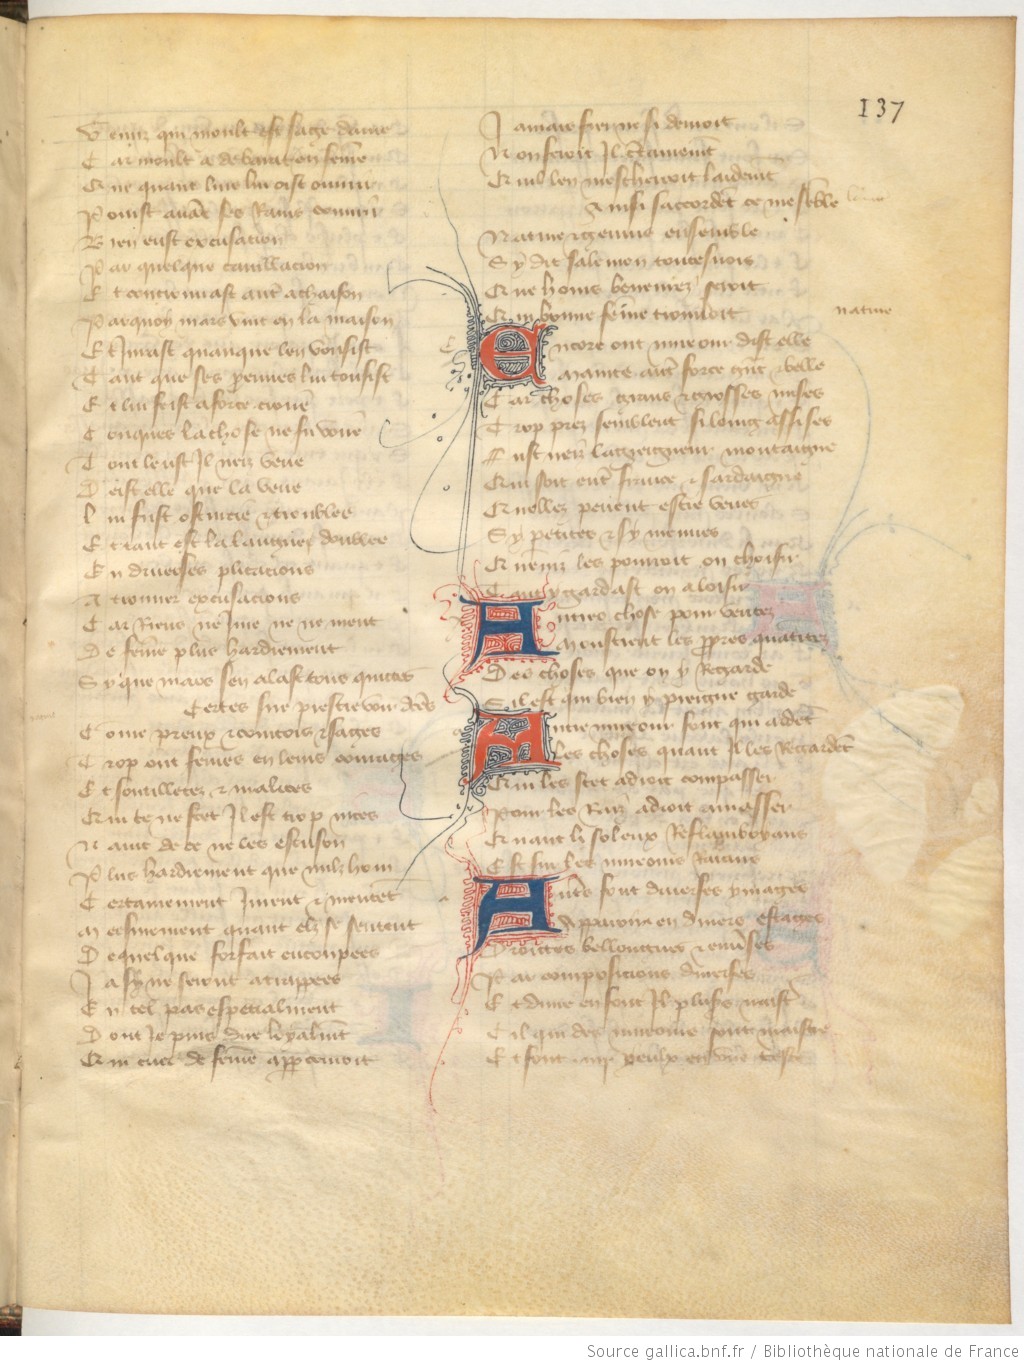 137
Venuz qui moult est sage dame
Car moult a de barat en feme
Et ne quant lune lui oist ouurir
Poist auāt ses Rains couurir
Bien eust excusation
Par quelque cauillacion
Et controuuast autre achaison
Parquoy mars vint en la maison
Et Jurast quanque len vousist
Tant que ses preuues lui tousist
Et lui feist a force croire
Conques la chose ne fu voire
Tout leust Il neiz veue
Deist elle que la veue
Lui fust obscurcie & troublee
Et tant est la langue doublee
En diuerses plicacions
A trouuer excusacions
Car Riens ne Jure ne ne ment
De feme plus hardiement
Sy que mars sen alast tous quictes
Certes sire prestre voir dites
Come preux & courtois & sages
Trop ont femes en leurs couraiges
Et soutilletez & malices
Qui ce ne scet Il est trop nices
Nauc de ce ne les escuson
Plus hardiement que nulz hom
Certainement Jurent & mentēt
Mesmement quant elz se sentent
De quelque forfait encoupees
Ja sy ne seront atrappees
En tel pas especialment
Dont Je puis dire loyalmēt
Qui cuer de feme apperceuoit
Jamais fier ne si deuroit
Non feroit Il certainemēt
Quil len mescherroit laidemt
Ainsi saccordēt ce me sēble
Nature & genius ensemble
Sy dit salemon toutesuois
Que homs beneurez seroit
Qui bonne feme trouueroit
nature
Encore ont mireour dist elle
Mainte autr force grāt & belle
Car choses grans & grosses mises
Trop prez semblent si loing assises
Fust neis la greigneur montaigne
Qui soit entr france & sardaigne
Quellez peuent estre veues
Sy petites & sy menues
Quenviz les pourroit on choisir
Tant y gardast on a loisir
Autres chose pour veritez
Monstrent les propres quātitez
Des choses que on y Regarde
Sil est qui bien y preigne garde
Autre mireour sont qui ardēt
Les choses quant Il les Regardēt
Qui les scet adroit compasser
Pour les Raiz adroit amasser
Quant li soleux Reflamboyans
Est sur les mireours Raiens
Autres font diuerses ymages
Apparoir en diuers estages
Droictes bellongues & enuerses
Par composicions diuerses
Et dune en font Il plusrs naistr
Cil qui des mireours sont maistre
Et font .iiij. yeulx en vne teste